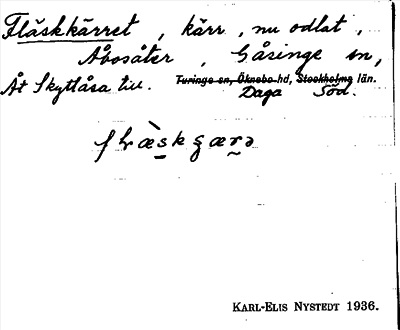 Fläskkärret, kärr, nu odlat,
Åbosäter, Gåsinge sn,
Åt Skyttlåsa till. Turinge sn, Öknebo hd, Stockholms län.
Daga Söd.
KARL-ELIS NYSTEDT 1936.